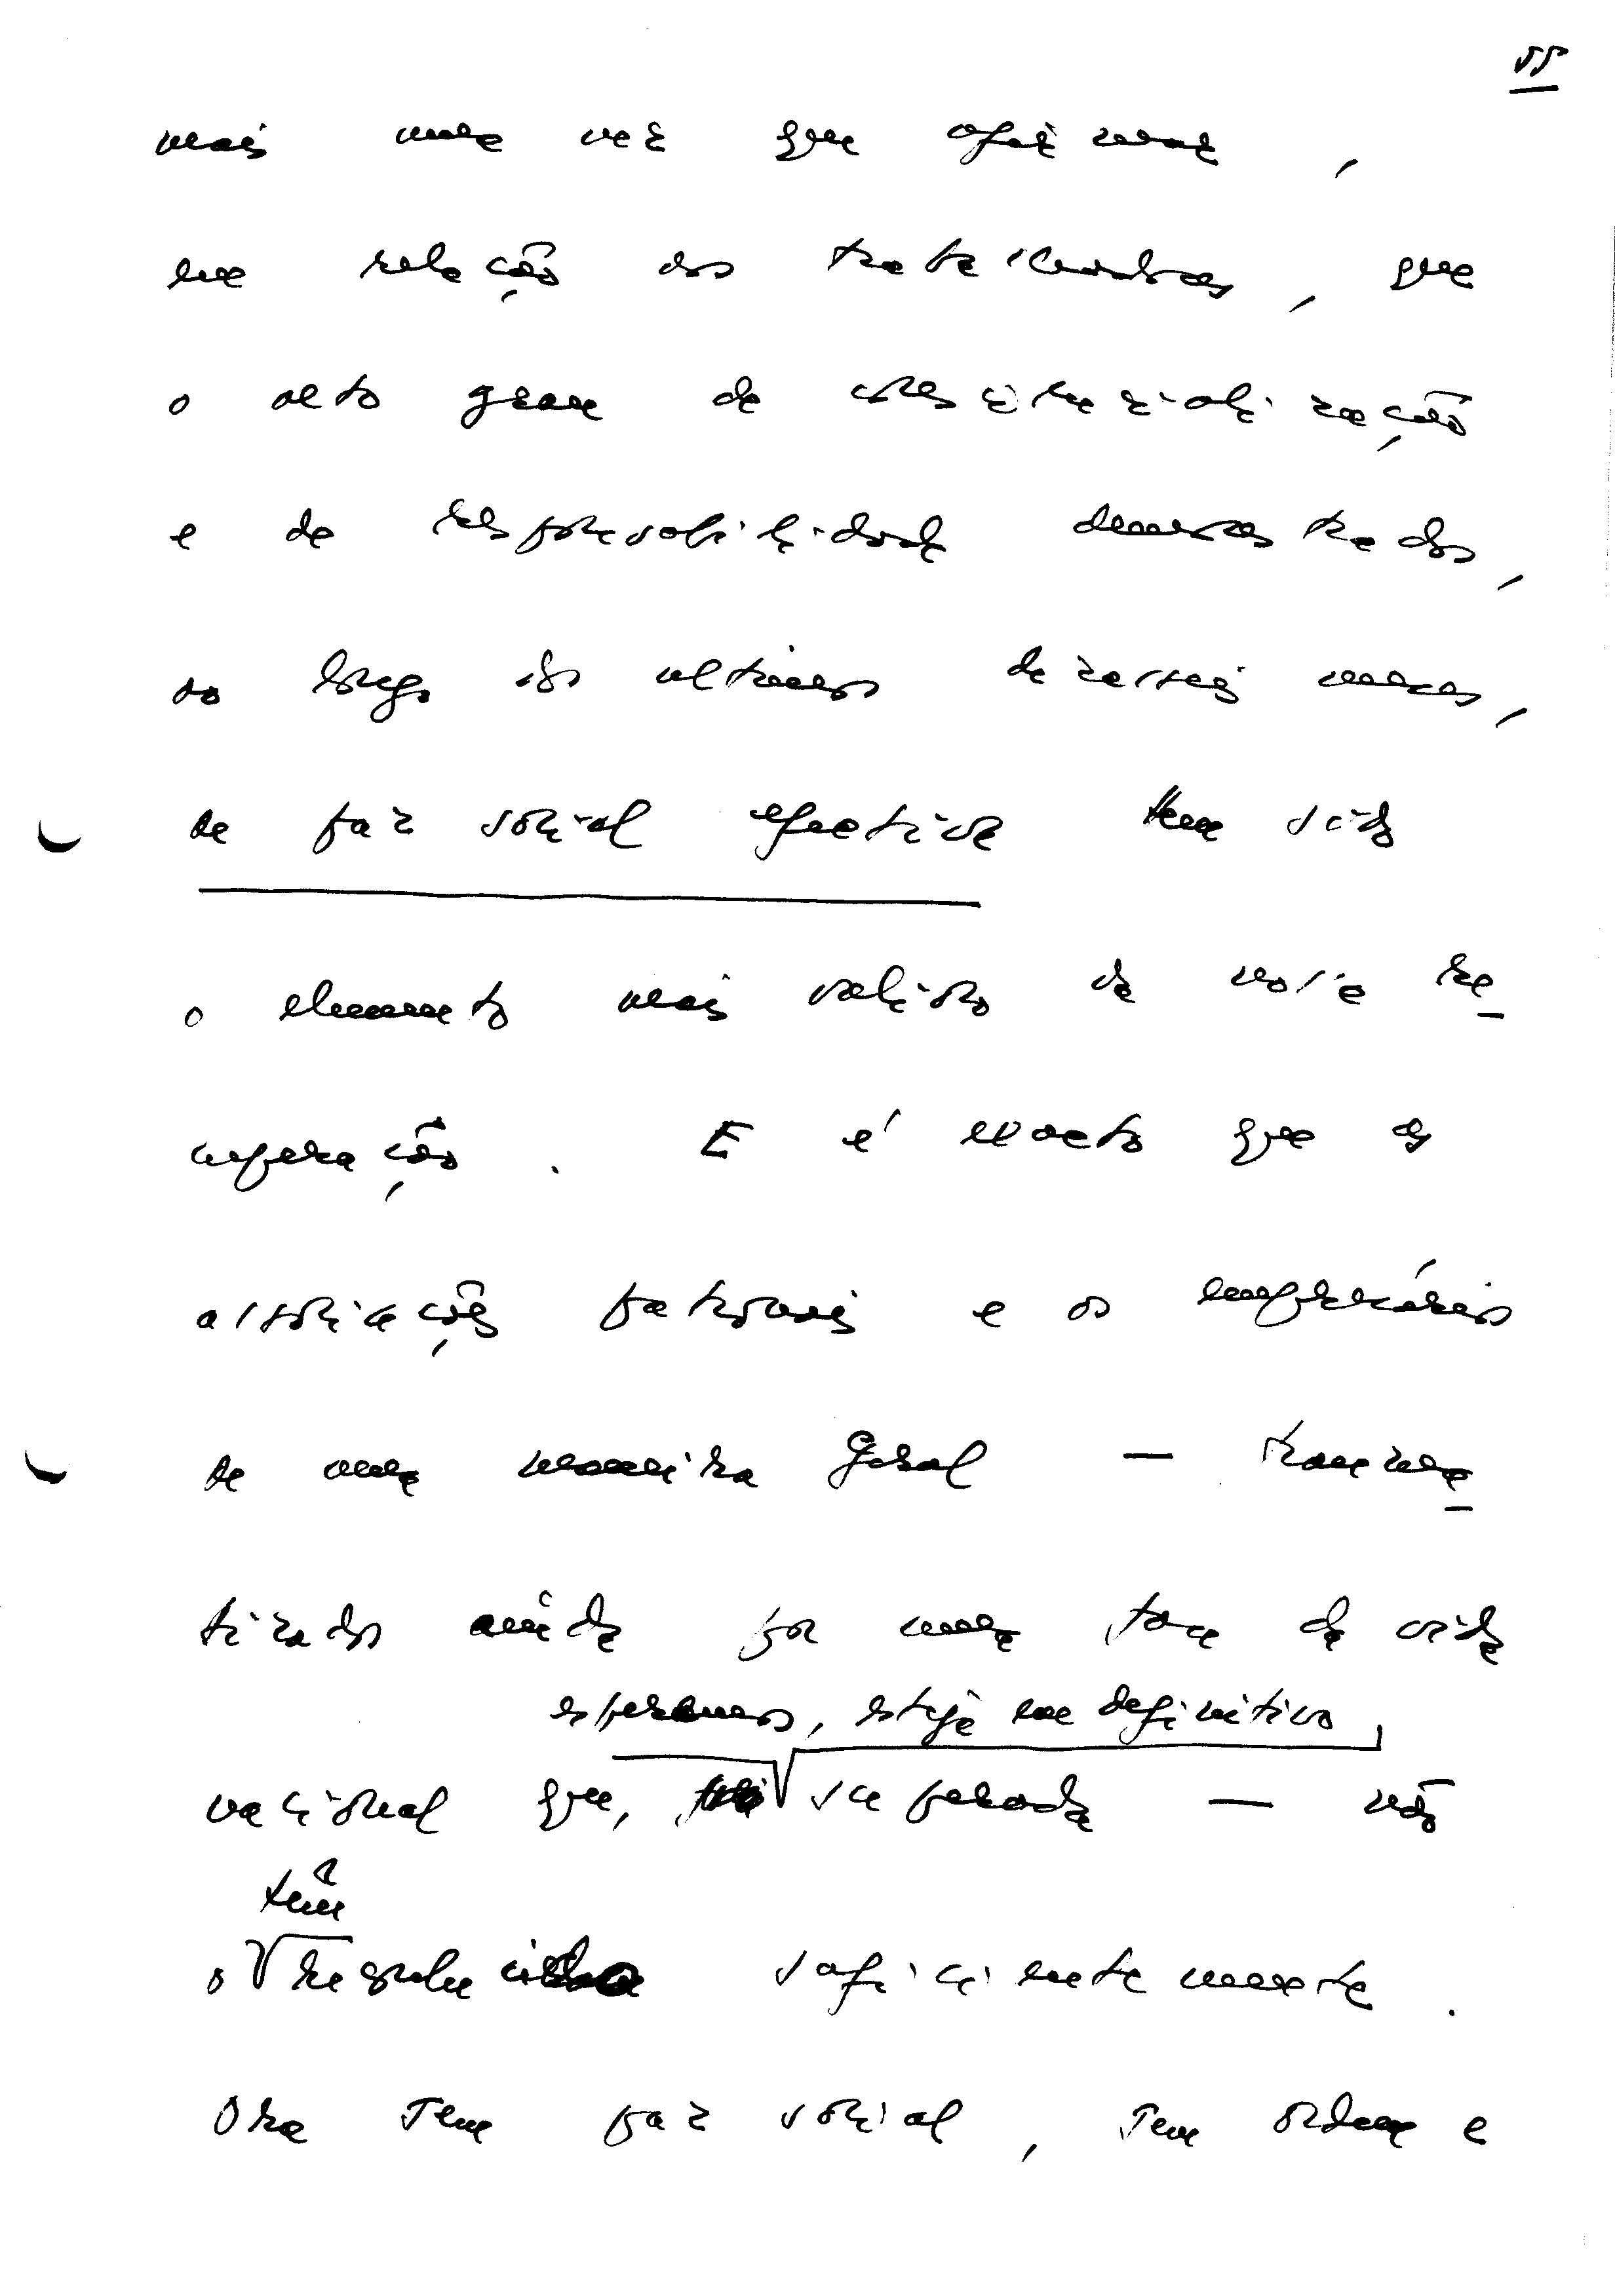 55
mais uma vez que afirmar,
em relação aos trabalhadores, que
o alto grau de consciencialização
e de responsabilidade demonstrados,
ao longo dos ultimos dezasseis meses,
de paz social efectiva tem sido
o elemento mais valioso da nossa re
cuperação. E é exacto que as
associações patronais e os empresários
de uma maneira geral — trauma
tizados ainda por uma fase da vida
esperamos, esteja em definitivo,
nacional que, superada — não
têm
o reconhecido suficientemente.
Ora sem paz social, sem ordem e